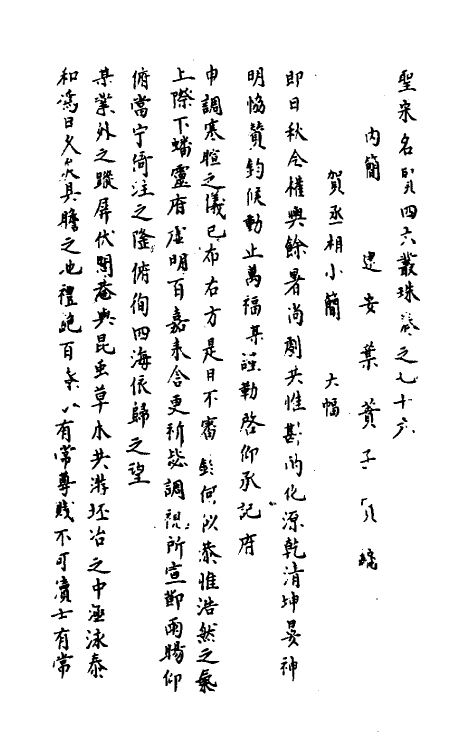 聖宋名賢四六叢珠卷之七十六
內簡 建安葉蕡子實編
賀丞相小簡 大幅
即日秋令權輿餘暑尚劇共惟斟酌化源乾清坤晏神
明協贊鈞候動止萬福某謹勒啓仰承記府
申調寒暄之儀已布右方是日不審 何似恭惟浩然之氣
上際下蟠靈府虛明百嘉來舍更祈毖調視所宣節雨暘仰
俯當宁倚注之隆俯徇四海依歸之望
某業外之蹤屏伏閭菴與昆蟲草木共游坯冶之中涵泳泰
和為日久矣具瞻之地禮絕百僚以有常尊賤不可瀆士有常